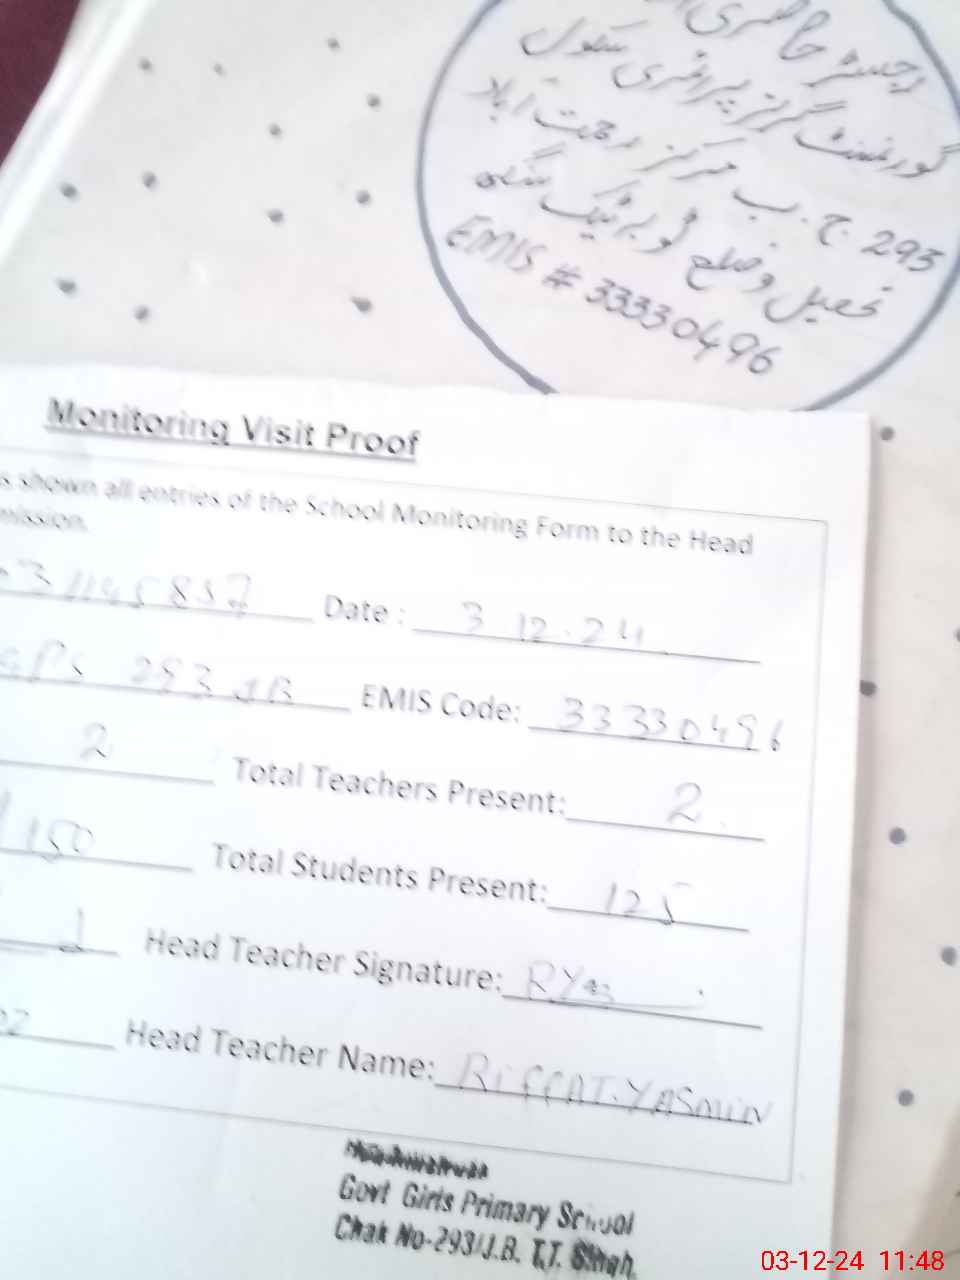 رجسٹر حاضری
گورنمنٹ گرلز پرائمری سکول
293 ج.ب مرکز رحمت آباد
تحصیل و ضلع ٹوبہ ٹیک سنگھ
EMIS # 33330496
Monitoring Visit Proof
s shown all entries of the School Monitoring Form to the Head
mission.
Date : 3.12.24
GPS 293 JB EMIS Code: 33330496
2 Total Teachers Present: 2
150 Total Students Present: 125
1 Head Teacher Signature:
02 Head Teacher Name: RIFFAT.YASMIN
Govt Girls Primary School
Chak No-293/J.B. T.T. Singh.
03-12-24 11:48